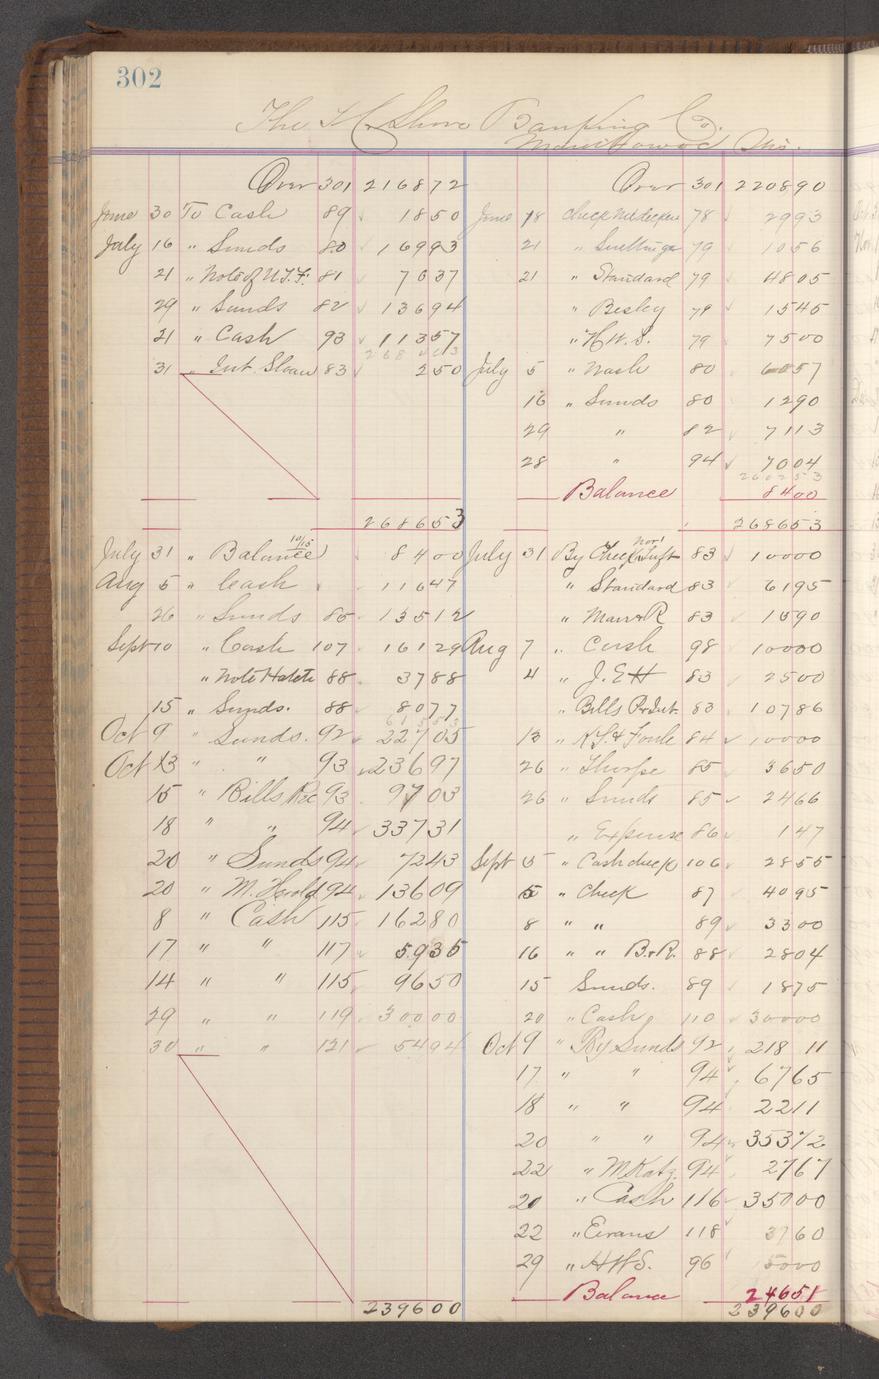 302
The Shove Banking Co.
Manitowoc Wis.
Over 301 216872
June 30 To Cash 89 1850
July 16 " Sunds 80 16993
21 " Note of 81 7637
29 " Sunds 82 13694
21 " Cash 93 11357
31 " Int. 83 250
268653
July 31 " Balance 10/15 8400
Aug 5 " Cash 11647
26 " Sunds 85 13512
Sept 10 " Cash 107 16129
" Note 88 3788
15 " Sunds. 88 8077
Oct 9 " Sunds. 92 22705
Oct 13 " " 93 23697
15 " Bills Rec 93 9703
18 " " 94 33731
20 " Sunds 94 7243
20 " M. Herold 94 13609
8 " Cash 115 16280
17 " " 117 5935
14 " " 115 9650
29 " " 119 30000
30 " " 121 5494
239600
Over 301 220890
June 18 78 2993
21 " 79 1056
21 " Standard 79 4805
" Besley 79 1545
" H.W.S. 79 7500
July 5 " Nash 80 6057
16 " Sunds 80 1290
29 " 82 7113
28 " 94 7004
Balance 8400
268653
July 31 By Check 83 10000
" Standard 83 6195
" 83 1590
Aug 7 " Cash 98 10000
4 " J.E.H 83 2500
" Bills R & Int. 83 10786
13 " 84 10000
26 " Thorpe 85 3650
26 " Sunds 85 2466
" Expense 86 147
Sept 5 " Cash check 106 2855
5 " Check 87 4095
8 " " 89 3300
16 " " B.&R. 88 2804
15 Sunds. 89 1875
20 " Cash 110 30000
Oct 9 " By Sunds 92 21811
17 " " 94 6765
18 " " 94 2211
20 " " 94 35372
22 " M. Katz. 94 2767
20 " Cash 116 35000
22 " Evans 118 3760
29 " H.W.S. 96 5000
Balance 24651
239600